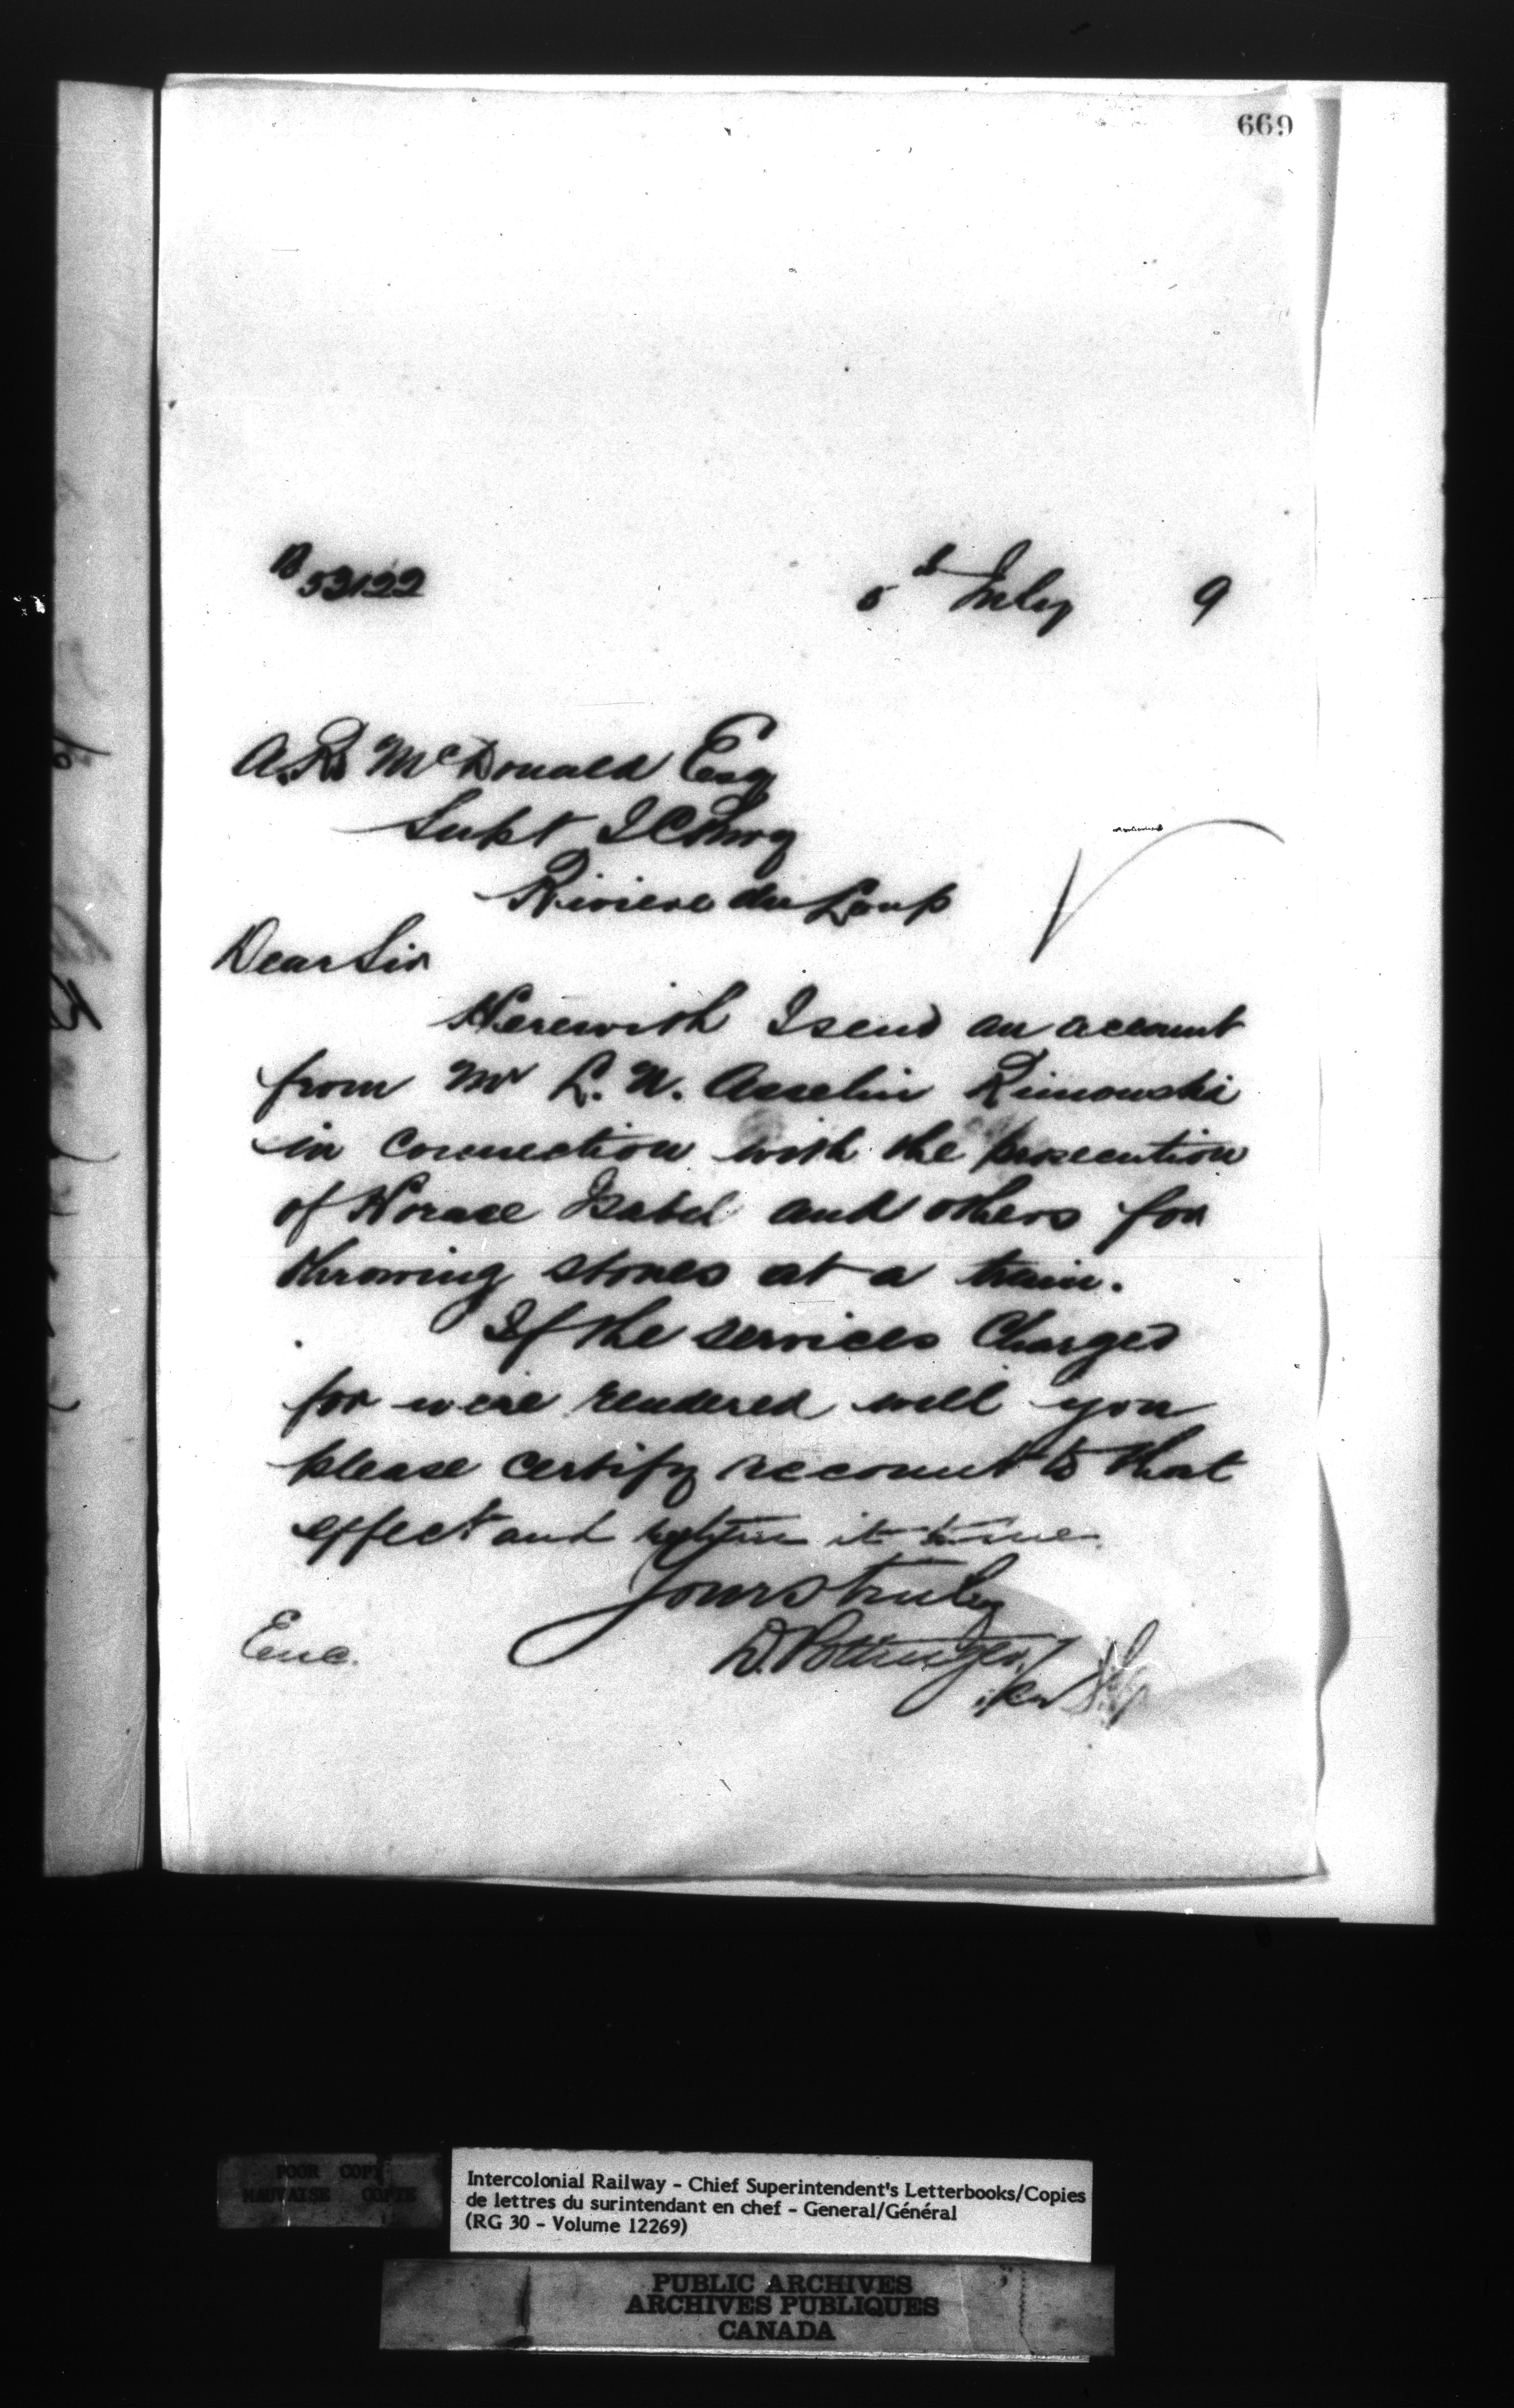 669
B 53122
5th July 9
A. R. McDonald Esq
Supt I C Rwy
Riviere du Loup
Dear Sir
Herewith I send an account
from Mr L. N. Asselin Rimouski
in connection with the prosecution
of Horace Isabel and others for
throwing stones at a train.
If the services Charged
for were rendered will you
please certify account to that
effect and return it to me.
Yours truly
D. Pottinger
Enc.
POOR COPY
MAUVAISE COPIE
Intercolonial Railway - Chief Superintendent's Letterbooks/Copies
de lettres du surintendant en chef - General/Général
(RG 30 - Volume 12269)
PUBLIC ARCHIVES
ARCHIVES PUBLIQUES
CANADA